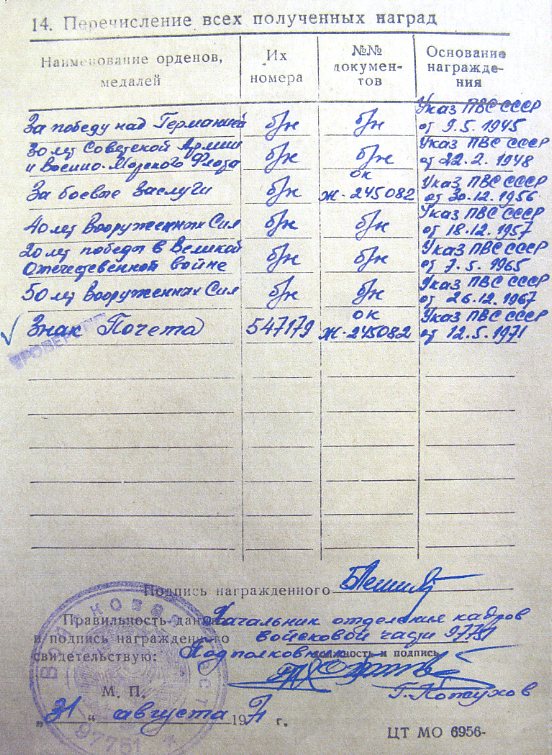 14. Перечисление всех полученных наград
Наименование орденов, медалей
Их номера
№№ документов
Основание награждения
За победу над Германией б/н б/н Указ ПВС СССР от 9.5.1945
30 лет Советской Армии и Военно-Морского Флота б/н б/н Указ ПВС СССР от 22.2.1948
За боевые заслуги б/н ок Ж-245082 Указ ПВС СССР от 30.12.1956
40 лет Вооруженных Сил б/н б/н Указ ПВС СССР от 18.12.1957
20 лет победы в Великой Отечественной войне б/н б/н Указ ПВС СССР от 7.5.1965
50 лет Вооруженных Сил б/н б/н Указ ПВС СССР от 26.12.1967
Знак Почета 547179 ок Ж-245082 Указ ПВС СССР от 12.5.1971
Подпись награжденного
Правильность данных Начальник отделения кадров
и подпись награжденного войсковой части 97751
свидетельствую: Подполковник
должность и подпись
М. П.
„31" августа 1971 г.
ЦТ МО 6956-
97751